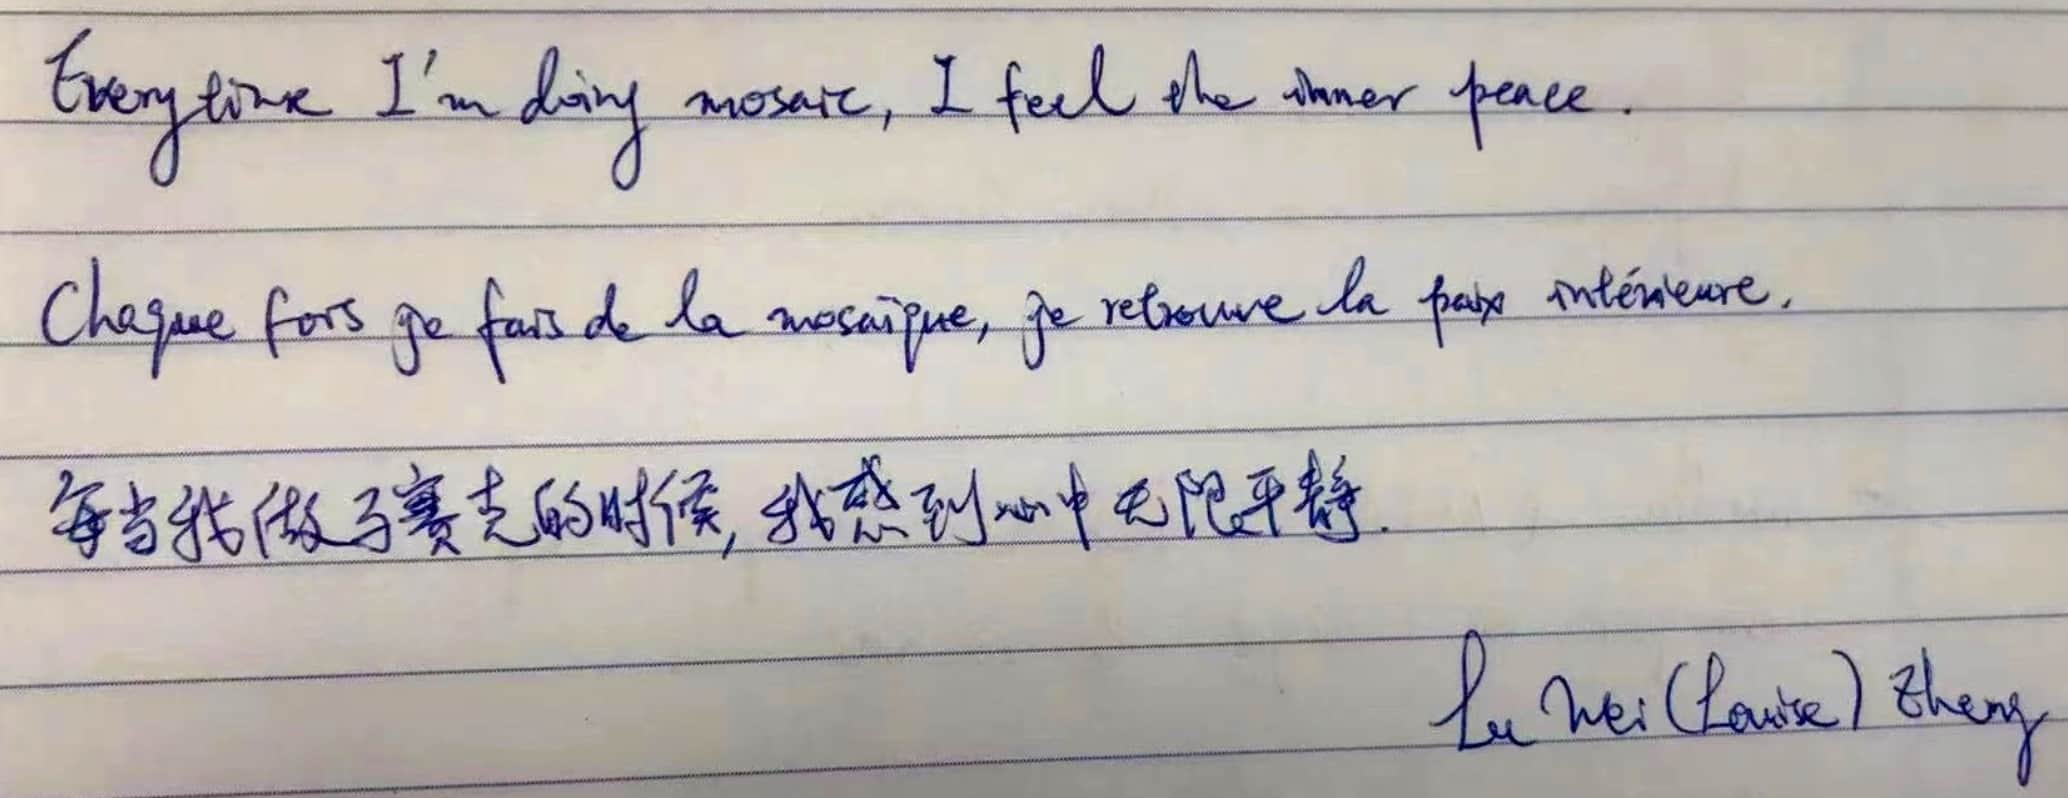 Everytime I'm doing mosaic, I feel the inner peace.
Chaque fois je fais de la mosaïque, je retrouve la paix intérieure.
每当我做马赛克的时候,我感到心中无限平静.
Lu Wei (Louise) Zheng